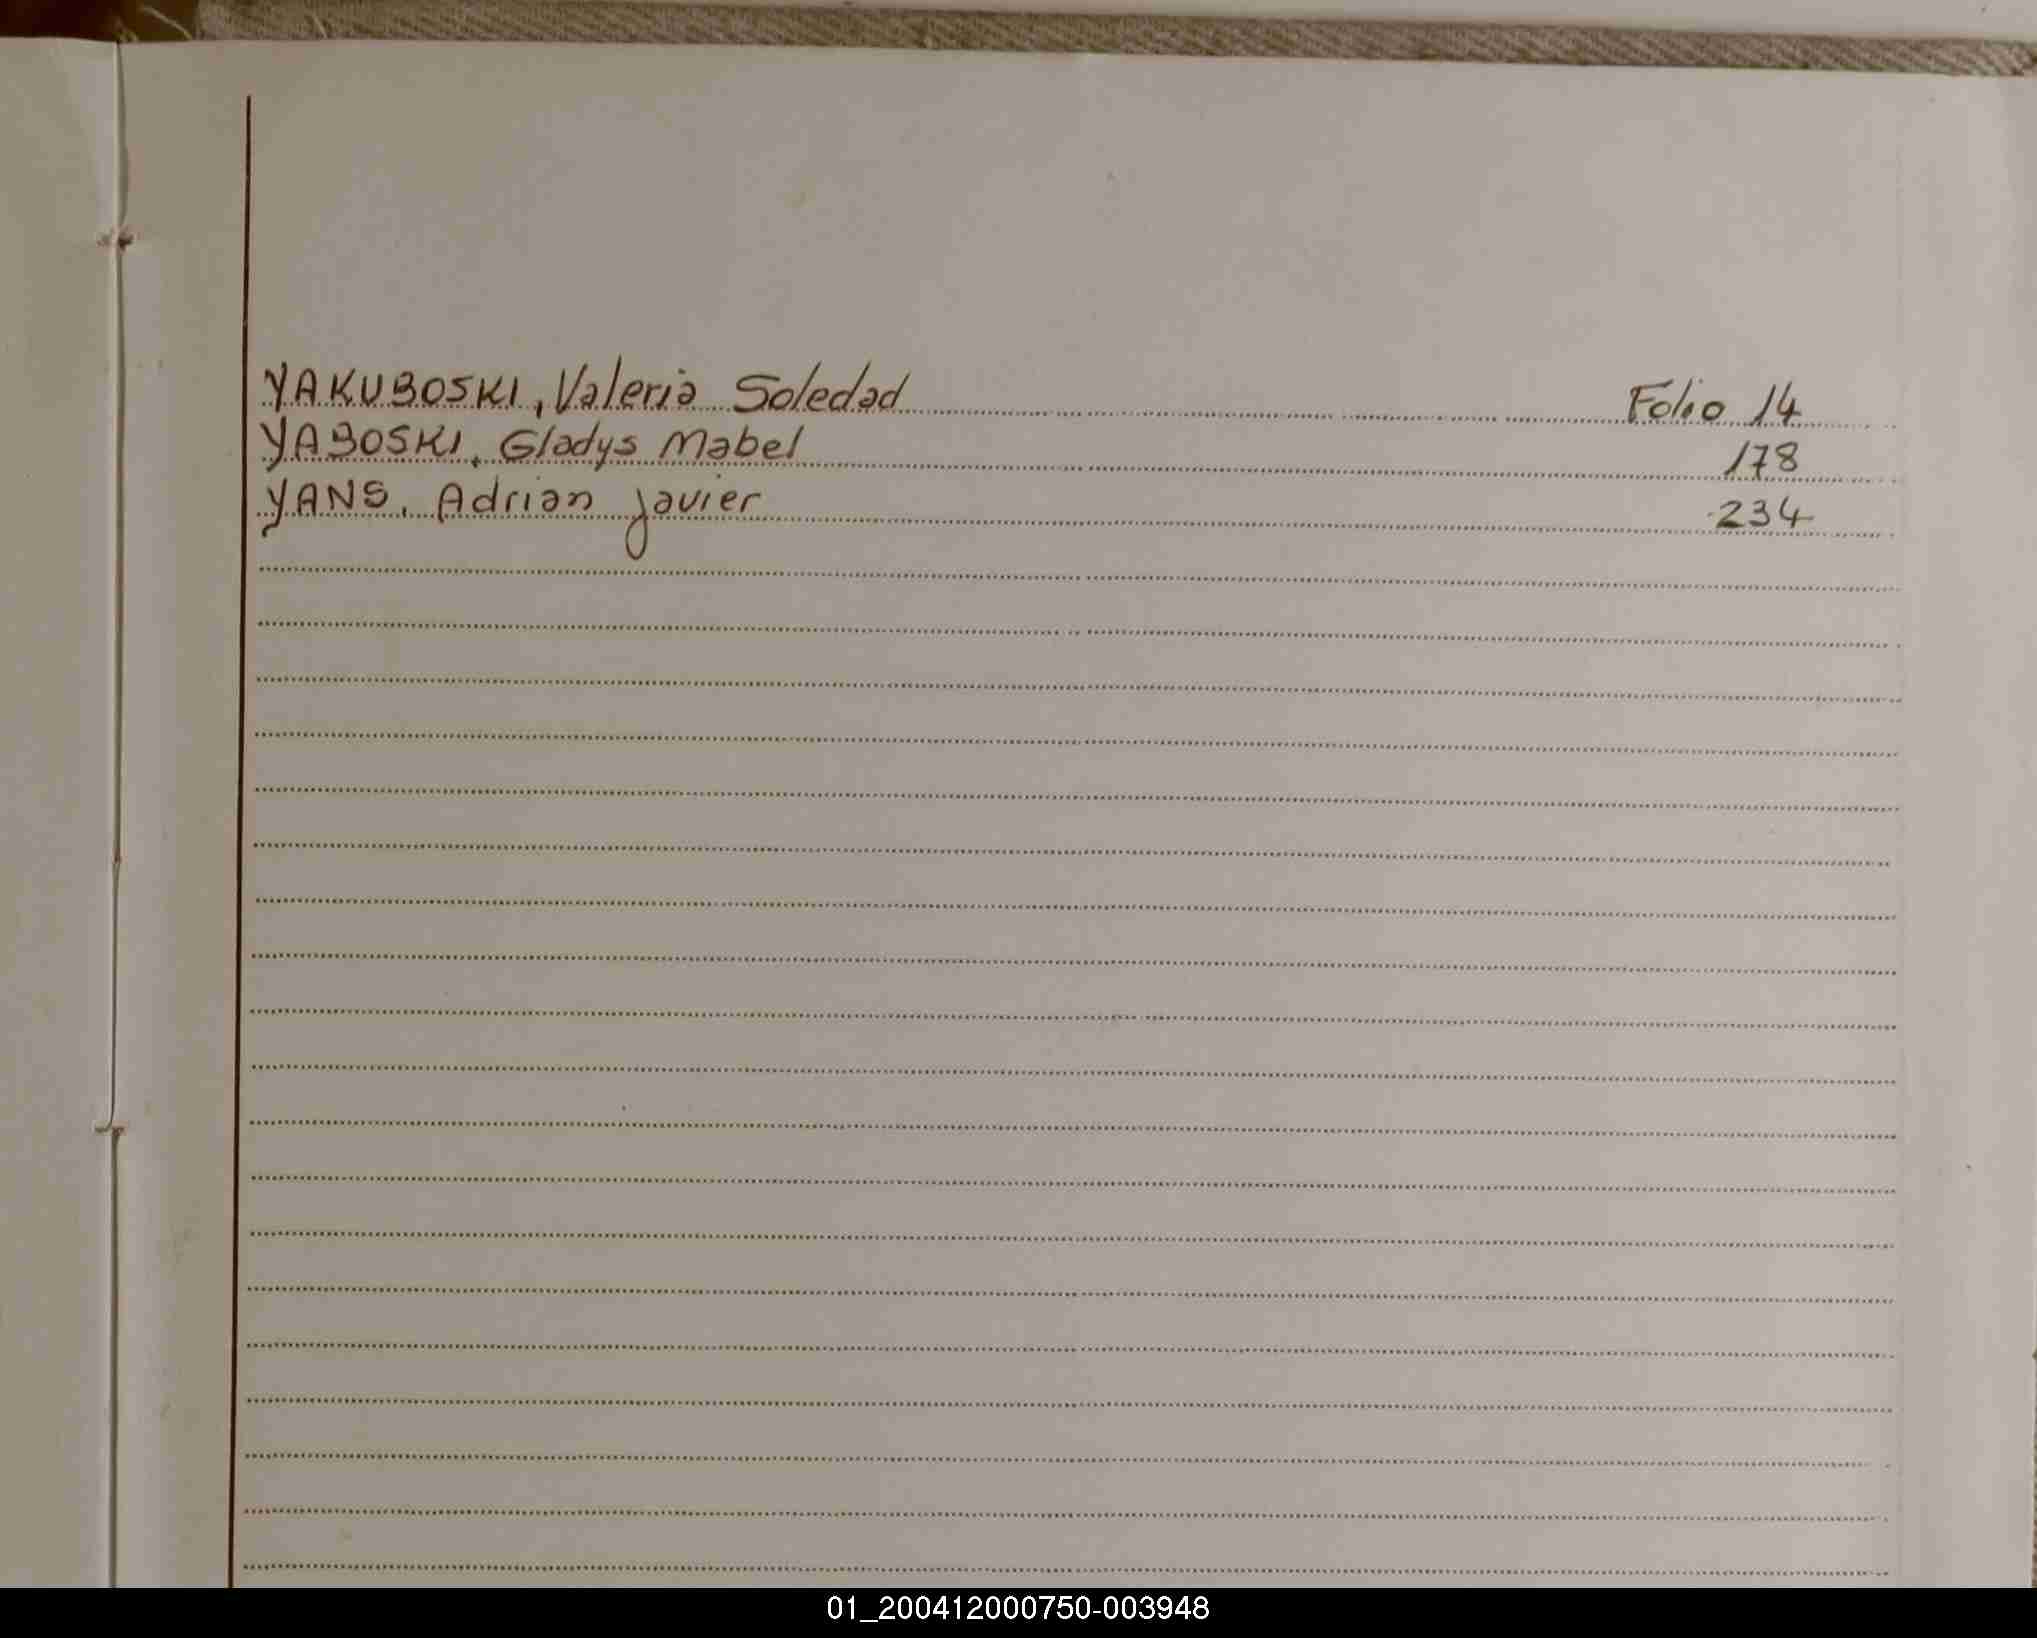 YAKUBOSKI, Valeria Soledad Folio 14
YABOSKI, Gladys Mabel 178
YANS, Adrian Javier 234
01_200412000750-003948